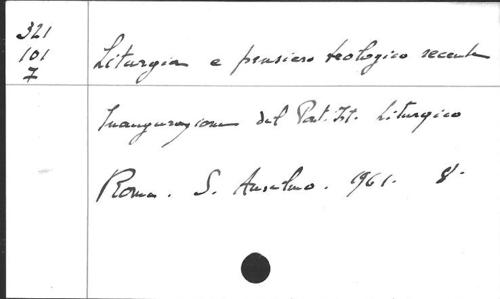 321
101
7
Liturgia e pensiero teologico recente
Inaugurazione del Pont. Ist. Liturgico
Roma. S. Anselmo. 1961. 8°.